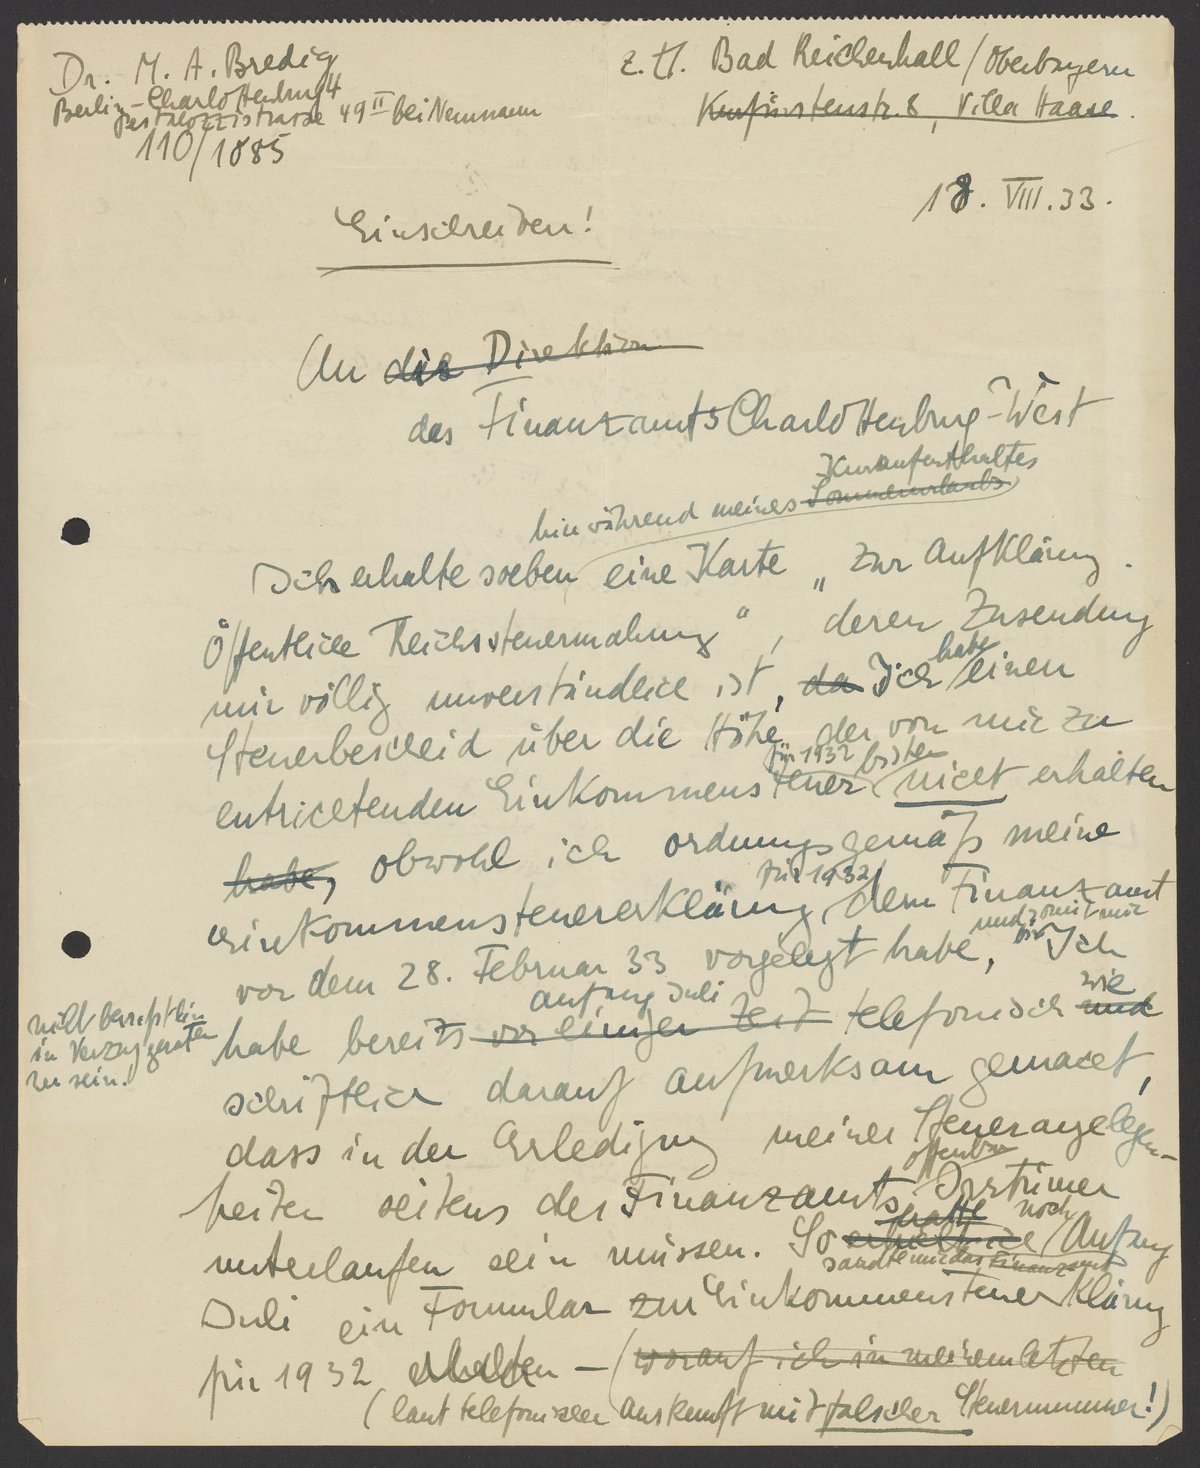 Dr. M. A. Bredig
Berlin-Charlottenburg 4
Pestalozzistrasse 49 II bei Neumann
110/1085
z. Zt. Bad Reichenhall/Oberbayern
Kurfürstenstr. 8, Villa Haase.
18. VIII. 33.
Einschreiben!
An die Direktion
des Finanzamts Charlottenburg-West
Kuraufenthaltes
hier während meines Sommerurlaubs
Ich erhalte soeben eine Karte „Zur Aufklärung.
Öffentliche Reichssteuermahnung", deren Zusendung
habe
mir völlig unverständlich ist, da Ich einen
Steuerbescheid über die Höhe der von mir zu
für 1932 bisher
entrichtenden Einkommensteuer nicht erhalten
habe, obwohl ich ordnungsgemäß meine
für 1932
Einkommensteuererklärung dem Finanzamt
und somit mir
vor dem 28. Februar 33 vorgelegt habe, Ich
nicht bewusst bin
in Verzug geraten
zu sein.
anfang Juli
wie
habe bereits vor einiger Zeit telefonisch und
schriftlich darauf aufmerksam gemacht,
dass in der Erledigung meiner Steuerangelegen-
offenbar
heiten seitens des Finanzamts Irrtümer
hatte noch
unterlaufen sein müssen. So erhielt ich Anfang
sandte mir das Finanzamt
Juli ein Formular zur Einkommensteuererklärung
für 1932 erhalten – (worauf ich in meinem letzten
(laut telefonischer Auskunft mit falscher Steuernummer!)